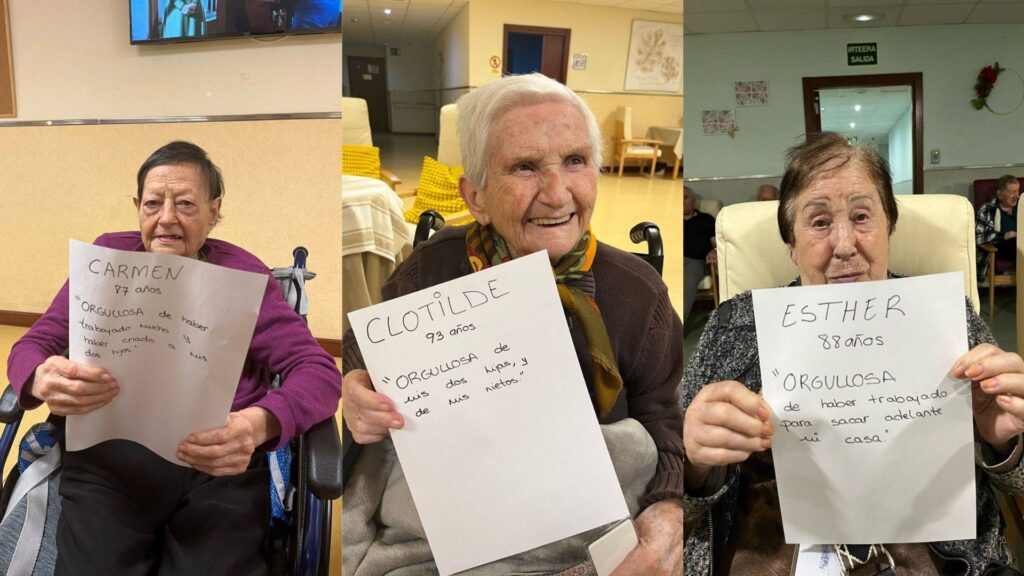 CARMEN
87 años
"ORGULLOSA de haber
trabajado mucho y
haber criado a mis
dos hijos."
CLOTILDE
93 años
"ORGULLOSA de
mis dos hijas, y
de mis nietos."
IRTEERA
SALIDA
ESTHER
88 años
"ORGULLOSA
de haber trabajado
para sacar adelante
mi casa."